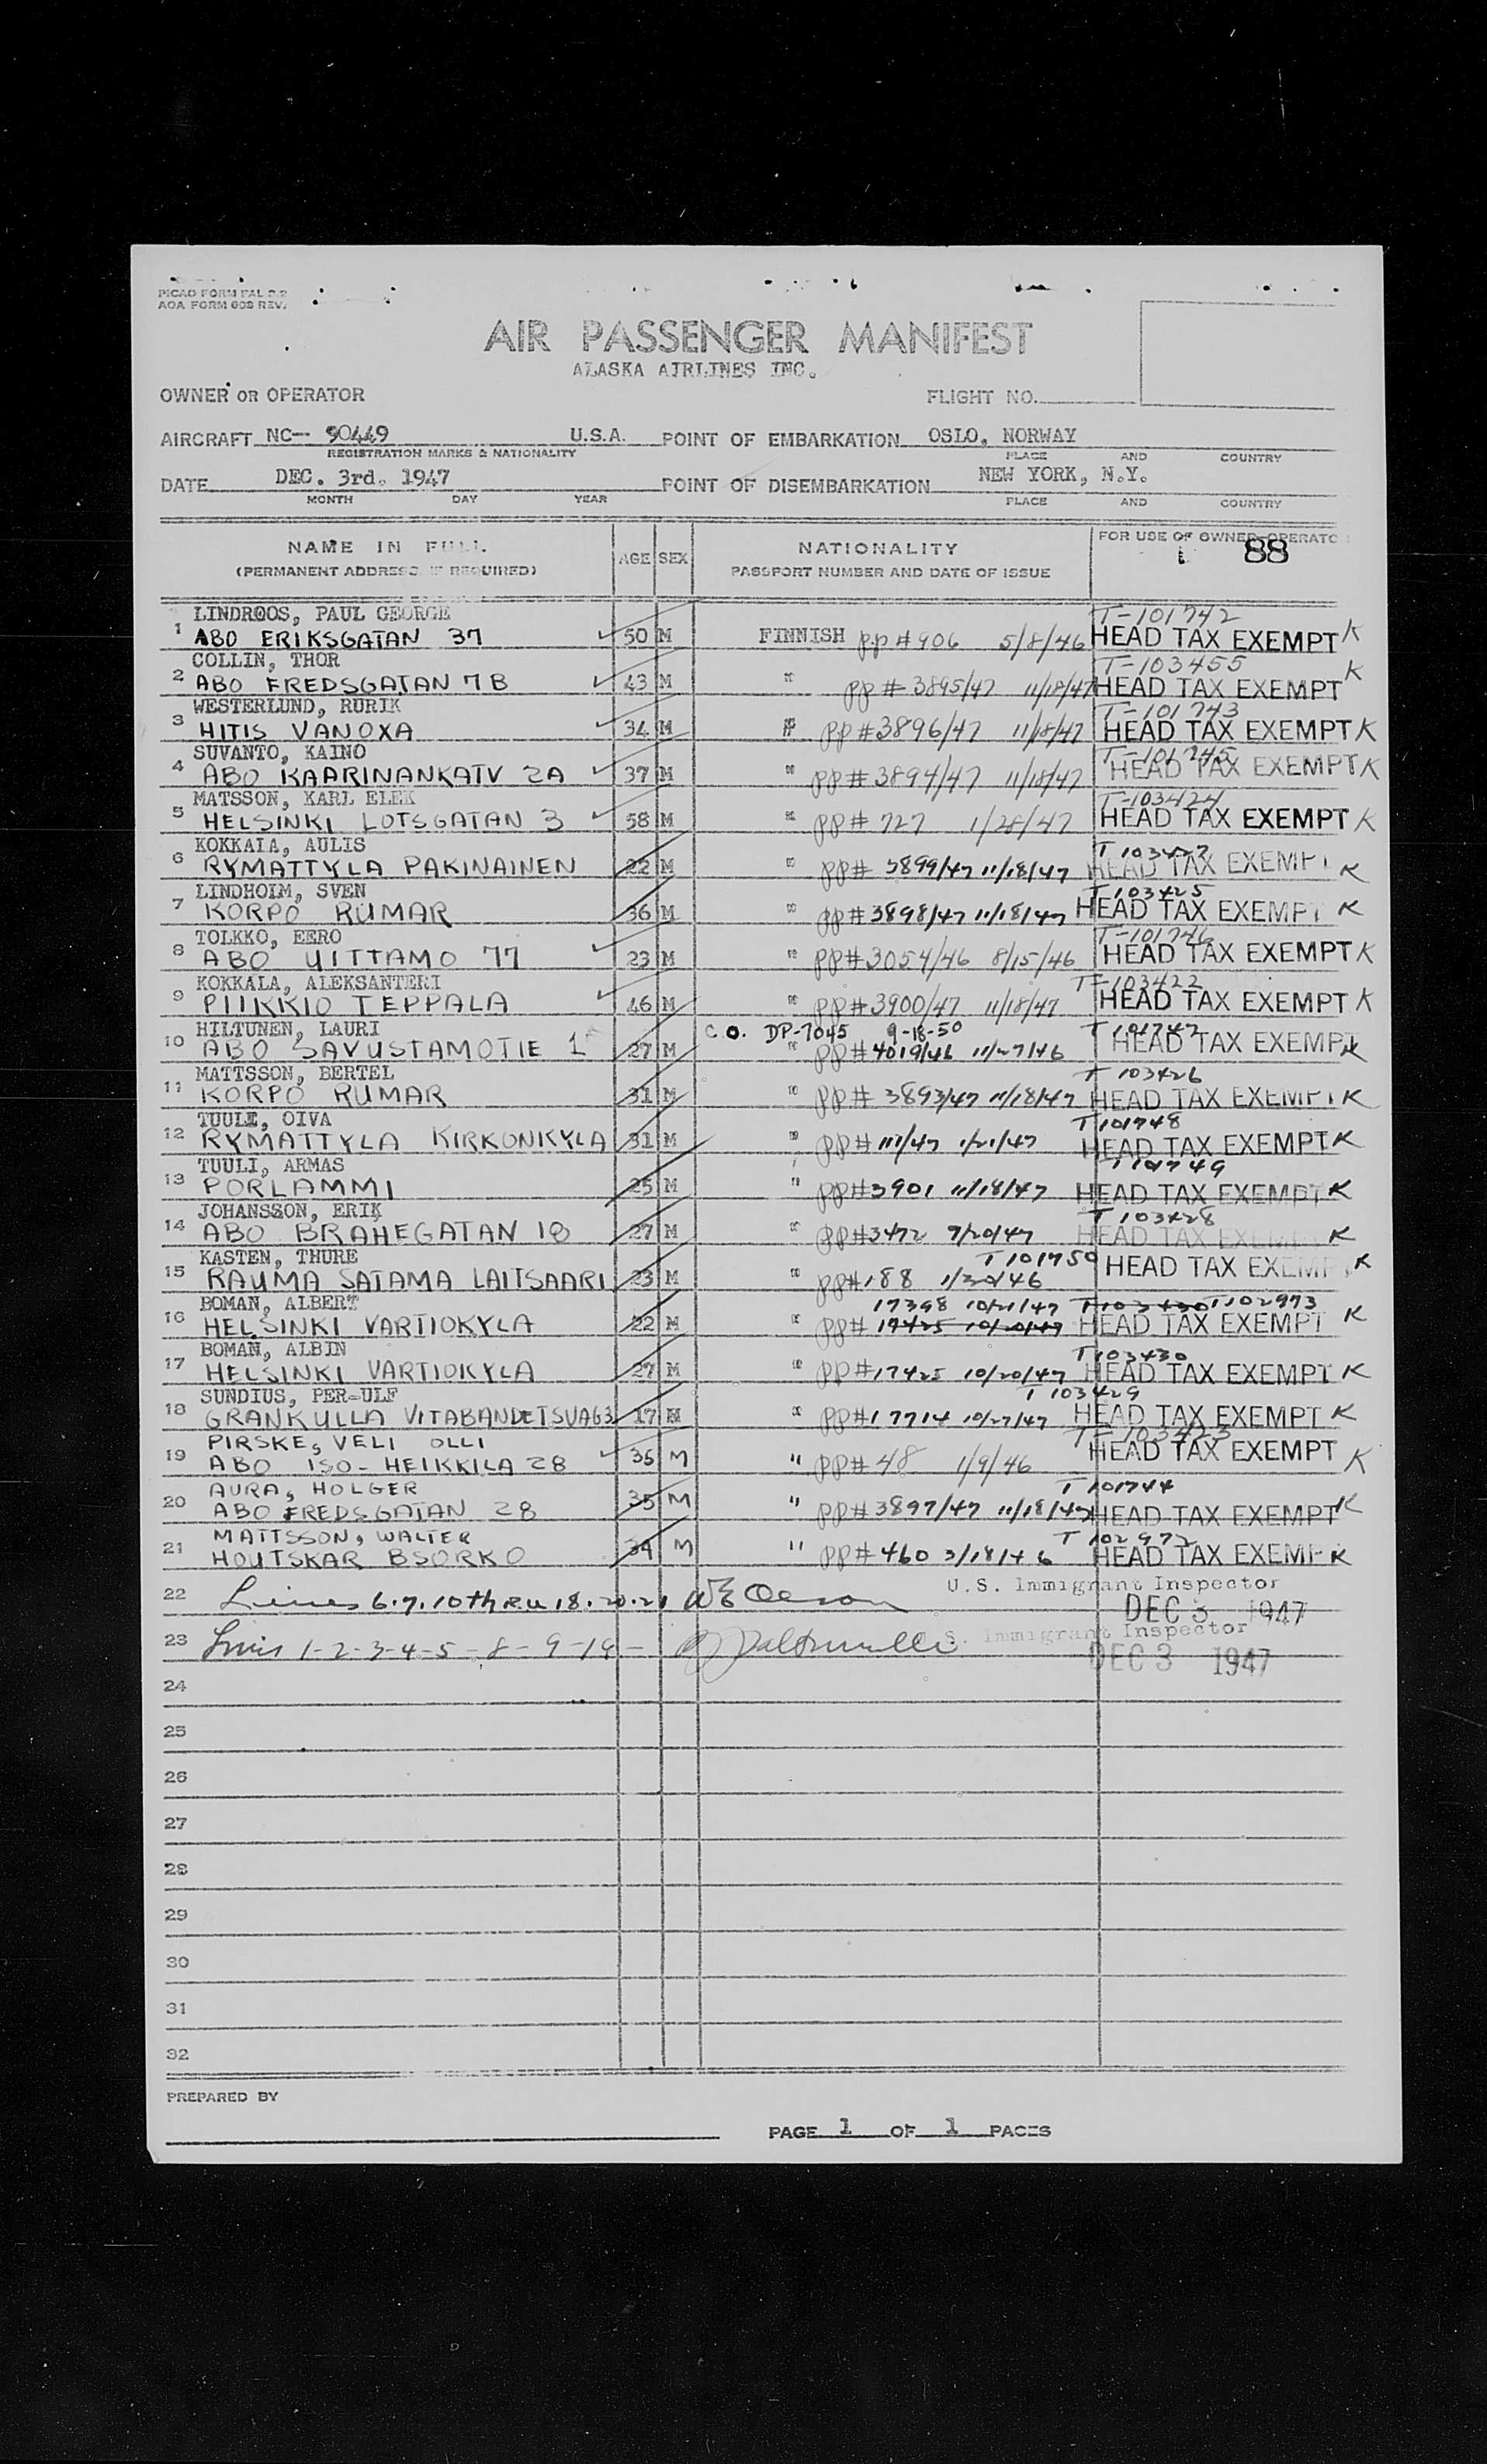 PICAO FORM FAL 2.2
AOA FORM 609 REV.
AIR PASSENGER MANIFEST
ALASKA AIRLINES INC.
OWNER OR OPERATOR
FLIGHT NO.
AIRCRAFT NC- 90449 U.S.A. POINT OF EMBARKATION OSLO, NORWAY
REGISTRATION MARKS & NATIONALITY PLACE AND COUNTRY
DATE DEC. 3rd. 1947 POINT OF DISEMBARKATION NEW YORK, N.Y.
MONTH DAY YEAR PLACE AND COUNTRY
NAME IN FULL AGE SEX NATIONALITY FOR USE OF OWNER-OPERATO
(PERMANENT ADDRESS, IF REQUIRED) PASSPORT NUMBER AND DATE OF ISSUE 88
LINDROOS, PAUL GEORGE T-101742
1 ABO ERIKSGATAN 37 50 M FINNISH pp # 906 5/8/46 HEAD TAX EXEMPT K
COLLIN, THOR T-103455 K
2 ABO FREDSGATAN 7B 43 M " pp # 3895/47 11/18/47 HEAD TAX EXEMPT
WESTERLUND, RURIK T-101743
3 HITIS VANOXA 34 M " pp # 3896/47 11/18/47 HEAD TAX EXEMPT K
SUVANTO, KAINO T-101745
4 ABO KAARINANKATV 2A 37 M " pp # 3894/47 11/18/47 HEAD TAX EXEMPT K
MATSSON, KARL ELEK T-103424
5 HELSINKI LOTSGATAN 3 58 M " pp # 727 1/28/47 HEAD TAX EXEMPT K
KOKKALA, AULIS T 103427
6 RYMATTYLA PAKINAINEN 22 M " pp # 3899/47 11/18/47 HEAD TAX EXEMPT K
LINDHOLM, SVEN T 103425
7 KORPO RUMAR 36 M " pp # 3898/47 11/18/47 HEAD TAX EXEMPT K
TOLKKO, EERO T-101746
8 ABO UITTAMO 77 23 M " pp # 3054/46 8/15/46 HEAD TAX EXEMPT K
KOKKALA, ALEKSANTERI T-103422
9 PIIKKIO TEPPALA 46 M " pp # 3900/47 11/18/47 HEAD TAX EXEMPT K
HILTUNEN, LAURI C.O. DP-7045 9-18-50 T 101747
10 ABO SAVUSTAMOTIE 1 27 M " pp # 4019/46 11/27/46 HEAD TAX EXEMPT K
MATTSSON, BERTEL T 103426
11 KORPO RUMAR 31 M " pp # 3893/47 11/18/47 HEAD TAX EXEMPT K
TUULE, OIVA T 101748
12 RYMATTYLA KIRKONKYLA 31 M " pp # 111/47 1/21/47 HEAD TAX EXEMPT K
TUULI, ARMAS T 101749
13 PORLAMMI 25 M " pp # 3901 11/18/47 HEAD TAX EXEMPT K
JOHANSSON, ERIK T 103428
14 ABO BRAHEGATAN 18 27 M " pp # 3472 9/20/47 HEAD TAX EXEMPT K
KASTEN, THURE T 101750
15 RAUMA SATAMA LAITSAARI 23 M " pp # 188 1/30/46 HEAD TAX EXEMPT K
BOMAN, ALBERT 17398 10/21/47 T 103430 T 102973
16 HELSINKI VARTIOKYLA 22 M " pp # 17425 10/20/47 HEAD TAX EXEMPT K
BOMAN, ALBIN T 103430
17 HELSINKI VARTIOKYLA 27 M " pp # 17425 10/20/47 HEAD TAX EXEMPT K
SUNDIUS, PER-ULF T 103429
18 GRANKULLA VITABANDETSVAG3 17 M " pp # 17714 10/27/47 HEAD TAX EXEMPT K
PIRSKE, VELI OLLI T-103423
19 ABO ISO-HEIKKILA 28 36 M " pp # 48 1/9/46 HEAD TAX EXEMPT K
AURA, HOLGER T 101744
20 ABO FREDSGATAN 28 35 M " pp # 3897/47 11/18/47 HEAD TAX EXEMPT K
MATTSSON, WALTER T 102972
21 HOUTSKAR BSORKO 34 M " pp # 460 3/18/46 HEAD TAX EXEMPT K
U.S. Immigrant Inspector
22 Lines 6.7.10 thru 18.20.21 DEC 3 1947
U.S. Immigrant Inspector
23 Lines 1-2-3-4-5-8-9-19- DEC 3 1947
24
25
26
27
28
29
30
31
32
PREPARED BY
PAGE 1 OF 1 PAGES